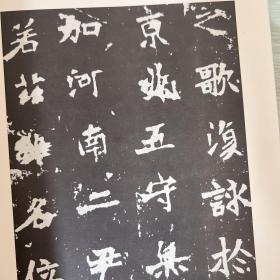 之歌復詠於
京兆五守無
加河南二尹
若茲雖名位